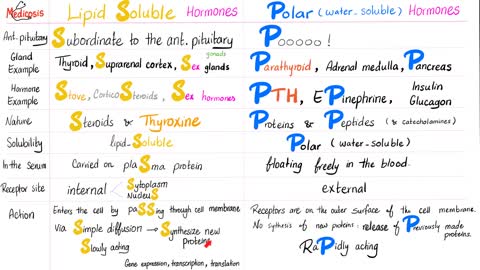 Medicosis
Lipid Soluble Hormones
Polar (water-soluble) Hormones
Ant. pituitary
Subordinate to the ant. pituitary
Pooooo!
Gland Example
gonads
Thyroid, Suprarenal cortex, Sex glands
Parathyroid, Adrenal medulla, Pancreas
Hormone Example
Stove, CorticoSteroids, Sex hormones
PTH, EPinephrine, Insulin Glucagon
Nature
Steroids & Thyroxine
Proteins & Peptides (& catecholamines)
Solubility
lipid-Soluble
Polar (water-soluble)
In the serum
Carried on plaSma protein
floating freely in the blood.
Receptor site
internal
Sytoplasm
NucleuS
external
Action
Enters the cell by paSSing through cell membrane
Via Simple diffusion → Synthesize new proteins
Slowly acting
Gene expression, transcription, translation
Receptors are on the outer surface of the cell membrane.
No sythesis of new proteins: release of Previously made proteins.
RaPidly acting